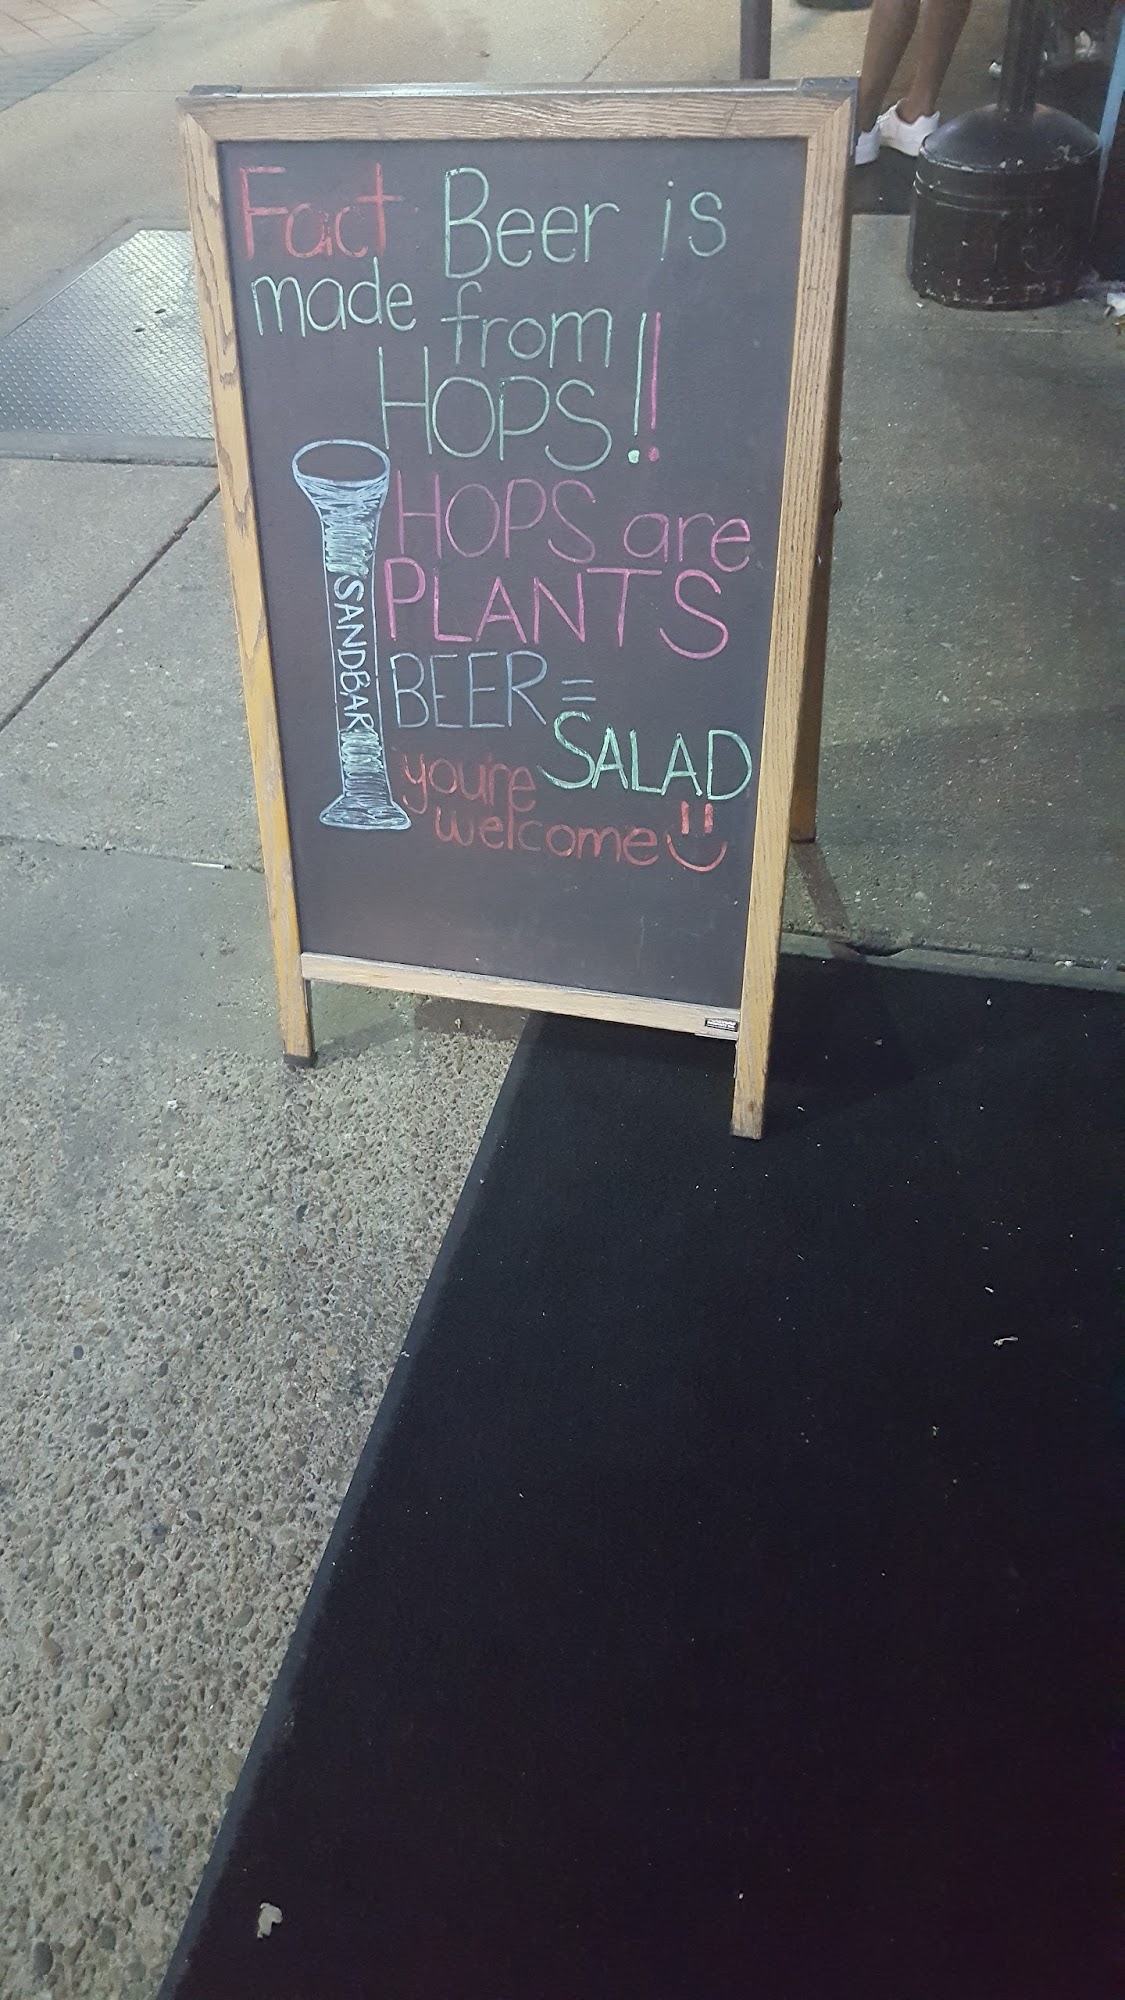 Fact Beer is
made from
HOPS!!
HOPS are
PLANTS
BEER =
SALAD
you're
welcome
SANDBAR